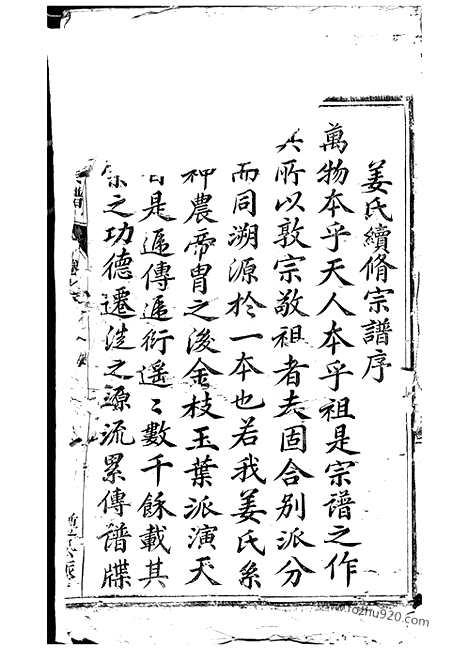 姜氏續脩宗譜序
萬物本乎天人本乎祖是宗譜之作
所以敦宗敬祖者也固合別派分
而同溯源於一本也若我姜氏系
神農帝胄之後金枝玉葉派演天
是遞傳遞衍遙〻數千餘載其
之功德遷徙之源流累傳譜牒
www.fozhu920.com